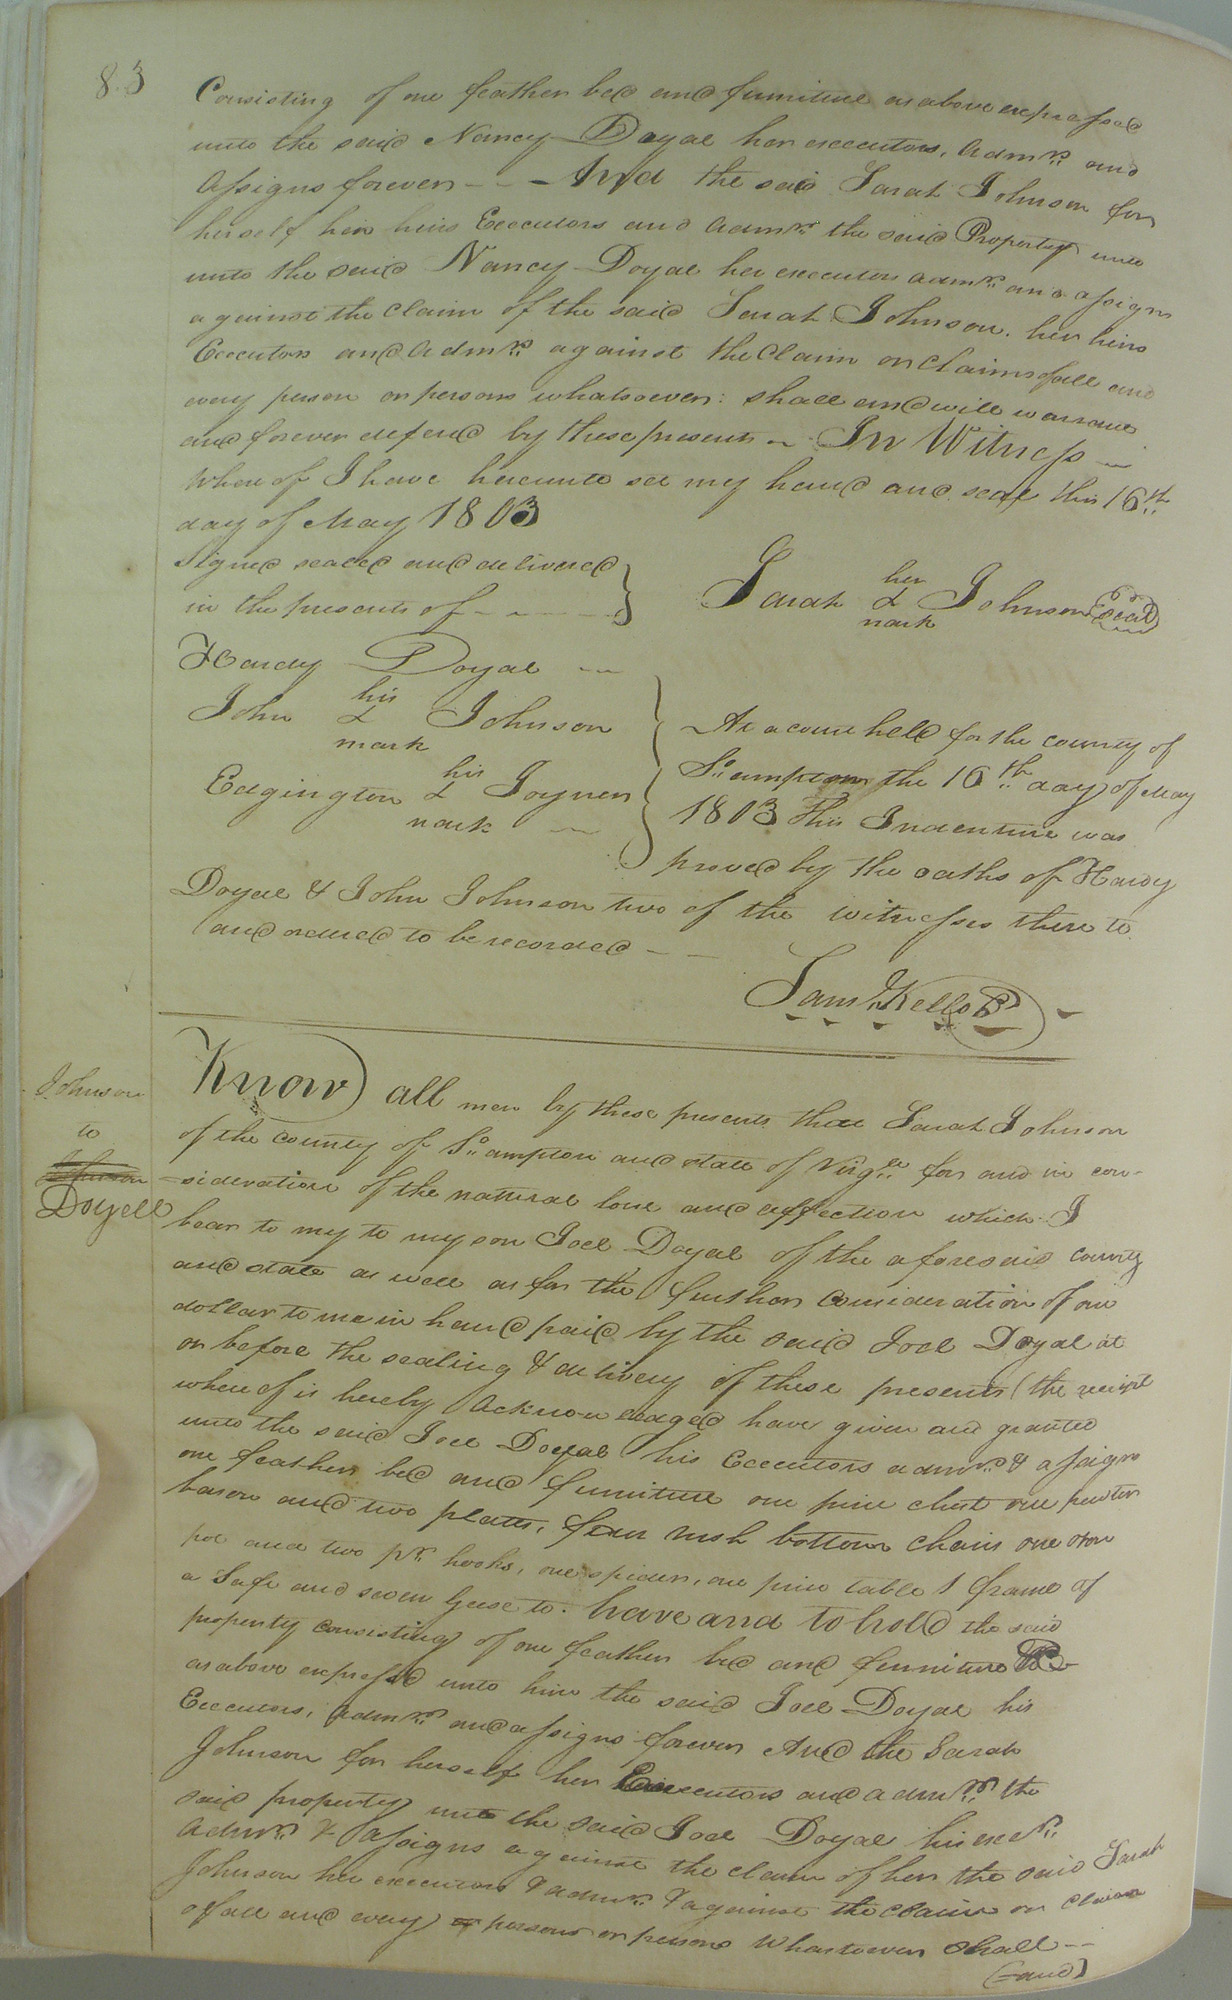 83
Consisting of one feather bed and furniture as above expressed
unto the said Nancy Doyal her executors, Admrs. and
Assigns forever - - - And the said Sarah Johnson for
herself her heirs Executors and Admrs. the said Property unto
unto the said Nancy Doyal her executors admrs. and assigns
against the Claim of the said Sarah Johnson. her heirs
Executors and Admrs. against the Claim or Claims of all and
every person or persons whatsoever: shall and will warrant
and forever defend by these presents ~ In Witness ~
Whereof I have hereunto set my hand and seal this 16th
day of May 1803
Signed sealed and delivered
in the presents of - - - -
Sarah her mark Johnson Seal
Hardy Doyal ~
John his mark Johnson
Edgington his mark Joyner ~
At a court held for the county of
So.ampton the 16th day of May
1803 This Indenture was
proved by the oaths of Hardy
Doyal & John Johnson two of the witnesses there to
and ordered to be recorded - -
Saml. Kello
Johnson
to
Johnson
Doyell
Know all men by these presents that Sarah Johnson
of the county of So.ampton and state of Virga. for and in con-
-sideration of the natural love and affection which I
bear to my to my son Joel Doyal of the aforesaid county
and state as well as for the further Consideration of one
dollar to me in hand paid by the said Joel Doyal at
or before the sealing & delivery of these presents (the receipt
whereof is hereby Acknowledged have given and granted
unto the said Joel Doyal his Executors admrs. & assigns
one feather bed and furniture one pine chest one pewter
bason and two plates, four rush bottom chairs one Iron
pot and two pr. hooks, one spider, one pine table 1 frame of
a Safe and seven Geese to. have and to hold the said
property consisting of one feather bed and furniture &c
as above expressed unto him the said Joel Doyal his
Executors, Admrs. and assigns forever And the Sarah
Johnson for herself her Executors and admrs. the
said property unto the said Joel Doyal his exers.
Admrs. & assigns against the claim of her the said Sarah
Johnson her executors & admrs. & against the claim or claims
of all and every or persons or persons Whatsoever Shall -
(-and)